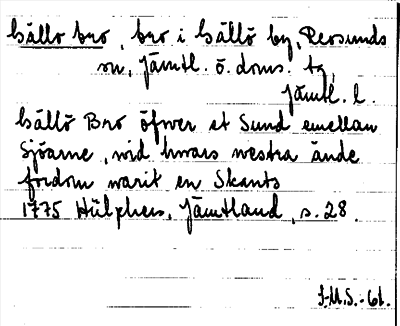 Gällö bro, bro i Gällö by, Revsunds
sn, Jämtl. ö. doms. tg,
Jämtl. l.
Gällö Bro öfwer et Sund emellan
Sjöarne, wid hwars westra ände
fordom warit en Skants
1775 Hülphers, Jämtland, s. 28.
J.M.S.-61.